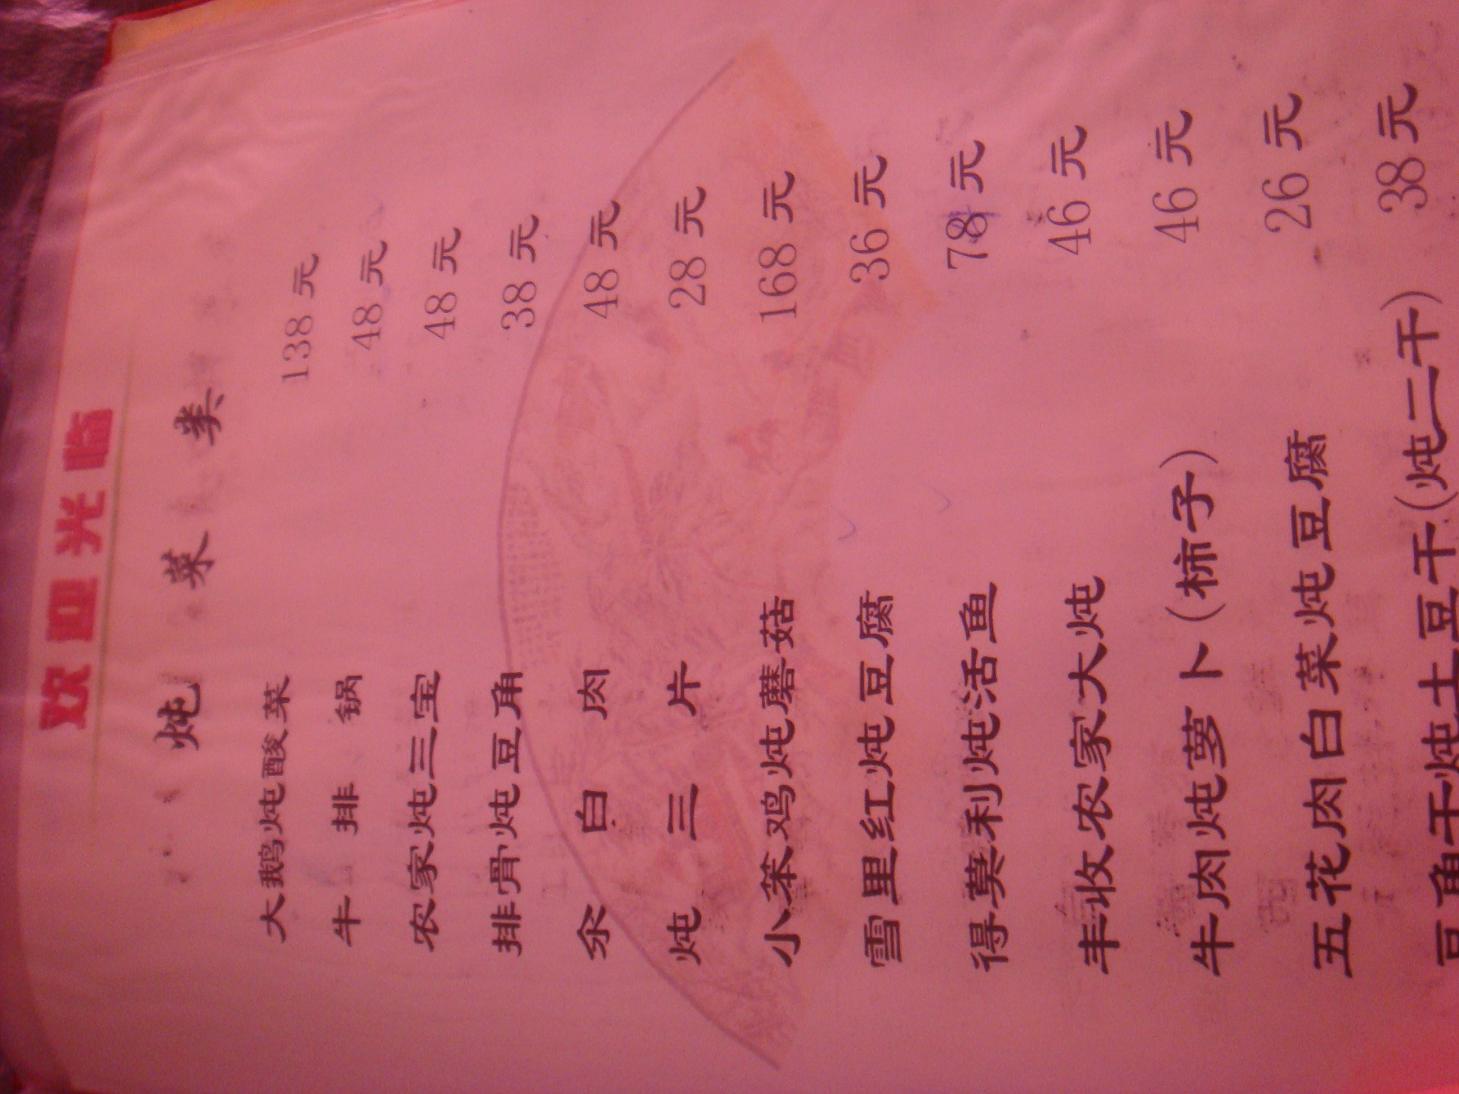 欢迎光临
炖菜类
大鹅炖酸菜 138元
牛排锅 48元
农家炖三宝 48元
排骨炖豆角 38元
氽白肉 48元
炖三片 28元
小笨鸡炖蘑菇 168元
雪里红炖豆腐 36元
得莫利炖活鱼 78元
丰收农家大炖 46元
牛肉炖萝卜(柿子) 46元
五花肉白菜炖豆腐 26元
豆角干炖土豆干(炖二干) 38元